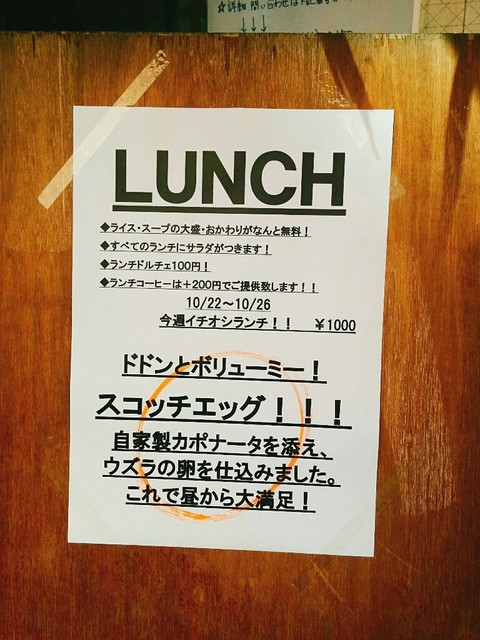 ☆詳細、問い合わせは下記番号
↓↓↓
LUNCH
◆ライス・スープの大盛・おかわりがなんと無料！
◆すべてのランチにサラダがつきます！
◆ランチドルチェ100円！
◆ランチコーヒーは＋200円でご提供致します！！
10/22～10/26
今週イチオシランチ！！　￥1000
ドドンとボリューミー！
スコッチエッグ！！！
自家製カポナータを添え、
ウズラの卵を仕込みました。
これで昼から大満足！